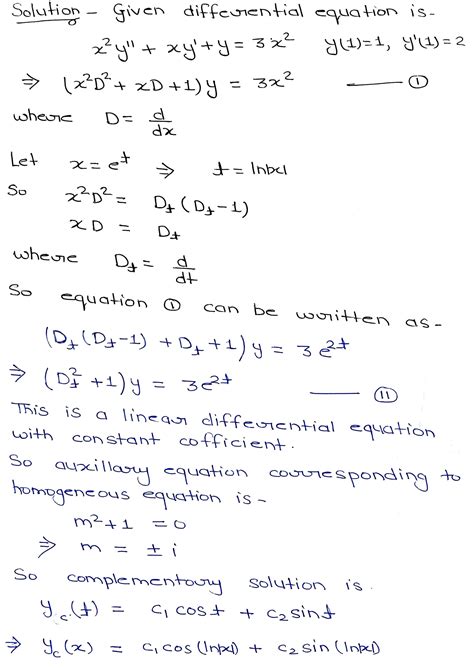 Solution - Given differential equation is-
x²y" + xy' + y = 3x²   y(1)=1, y'(1)=2
⇒ (x²D² + xD + 1)y = 3x² —— ①
where D = d/dx
Let x = e^t ⇒ t = ln|x|
So x²D² = D_t (D_t - 1)
xD = D_t
where D_t = d/dt
So equation ① can be written as-
(D_t (D_t - 1) + D_t + 1) y = 3e^2t
⇒ (D_t² + 1) y = 3e^2t —— ⑪
This is a linear differential equation
with constant cofficient.
So auxillary equation corresponding to
homogeneous equation is -
m² + 1 = 0
⇒ m = ± i
So complementary solution is.
y_c(t) = c₁ cost + c₂ sint
⇒ y_c(x) = c₁ cos(ln|x|) + c₂ sin(ln|x|)